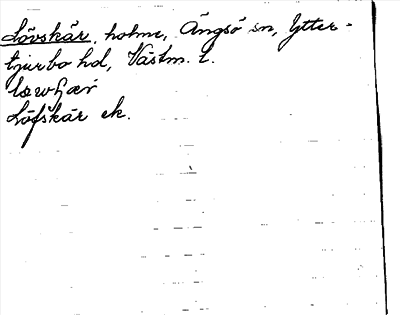 Lövskär, holme, Ängsö sn, Ytter-
tjurbo hd, Västm. l.
Löfskär ek.